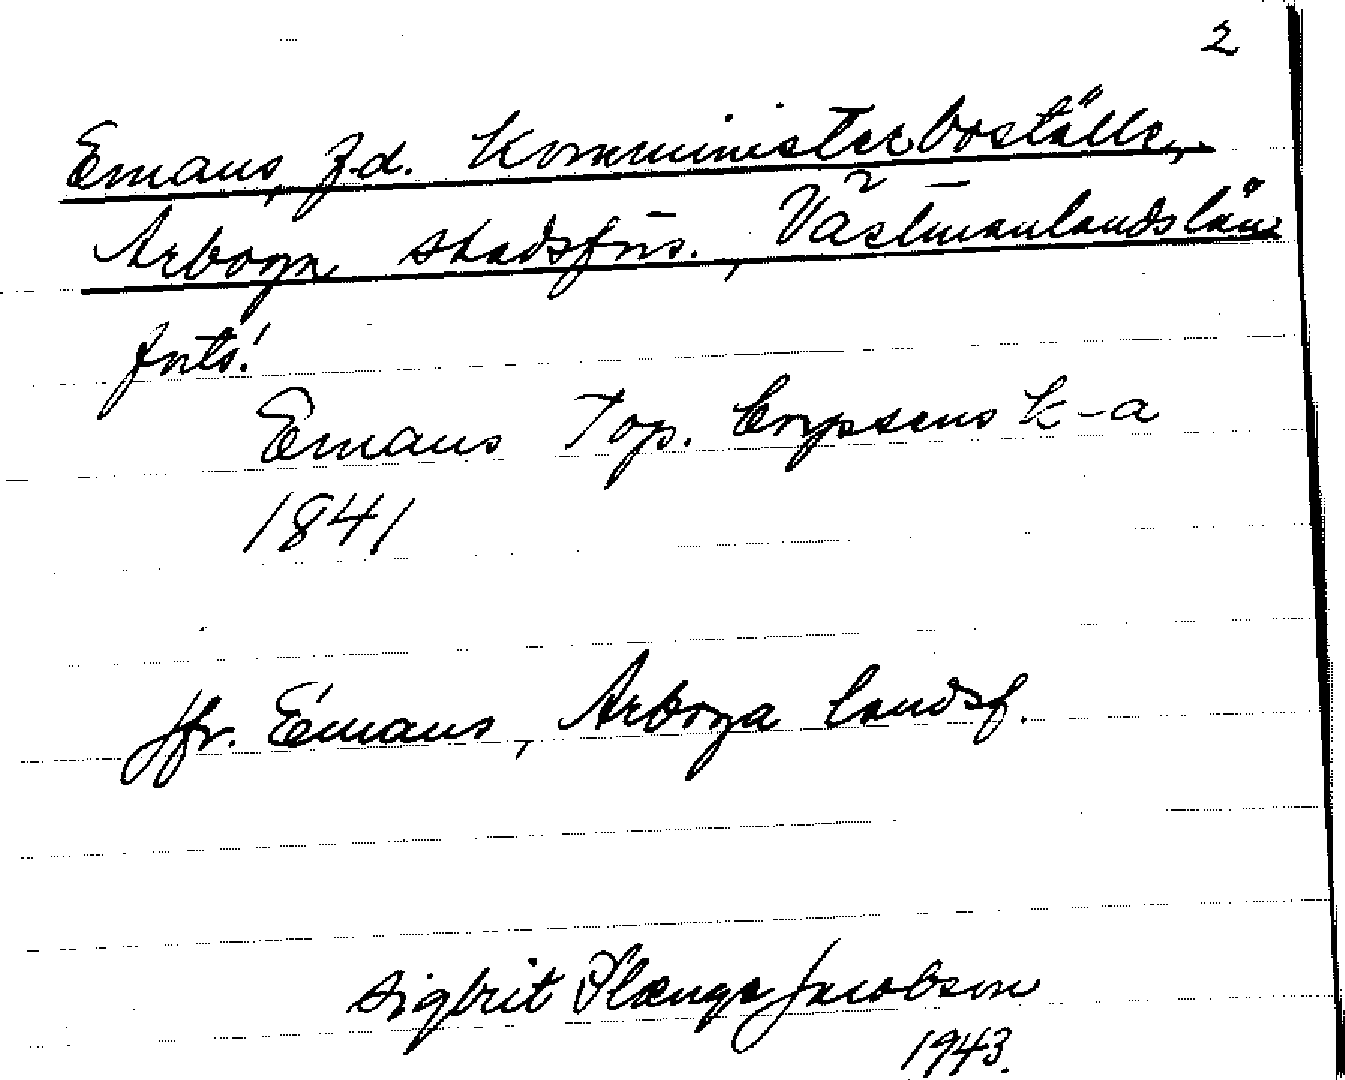 2
Emaus, f.d. Komministerboställe,
Arboga stadsförs., Västmanlands län
forts!
Emaus Top. Corpsens k-a
1841
Jfr. Emaus, Arboga landsf.
Sigbrit Plænge Jacobson
1943.